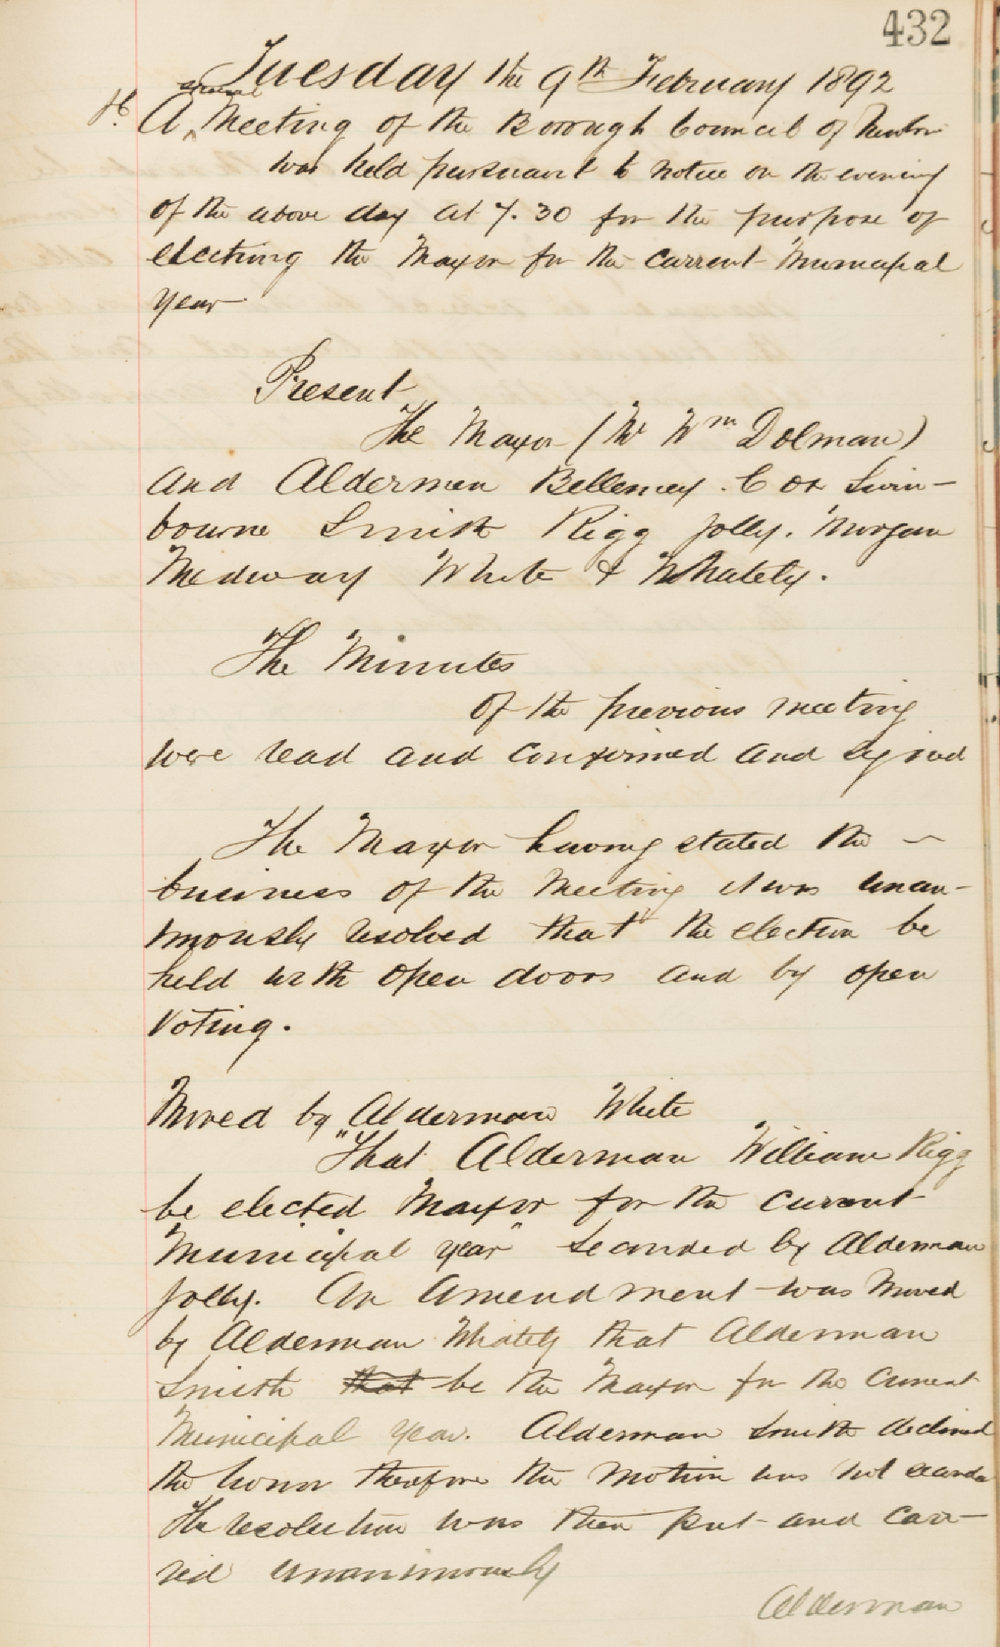 432
Tuesday the 9th February 1892
special
A Meeting of the Borough Council of
was held pursuant to notice on the evening
of the above day at 7.30 for the purpose of
electing the Mayor for the current Municipal
year
Present
The Mayor (Mr Wm Dolman)
and Aldermen Bellemey. Cox Swin-
bourne Smith Rigg Jolly. Morgan
Medway White & Whately.
The Minutes
of the previous meeting
were read and confirmed and signed
The Mayor having stated the
business of the Meeting it was unan-
imously resolved that the election be
held with open doors and by open
Voting.
Moved by Alderman White
"That Alderman William Rigg
be elected Mayor for the current
Municipal year" Seconded by Alderman
Jolly. An Amendment was Moved
by Alderman Whately that Alderman
Smith that be the Mayor for the Current
Municipal Year. Alderman Smith declined
the honor therefore the Motion was not seconded
The resolution was then put and Carr-
ied unanimously
Alderman